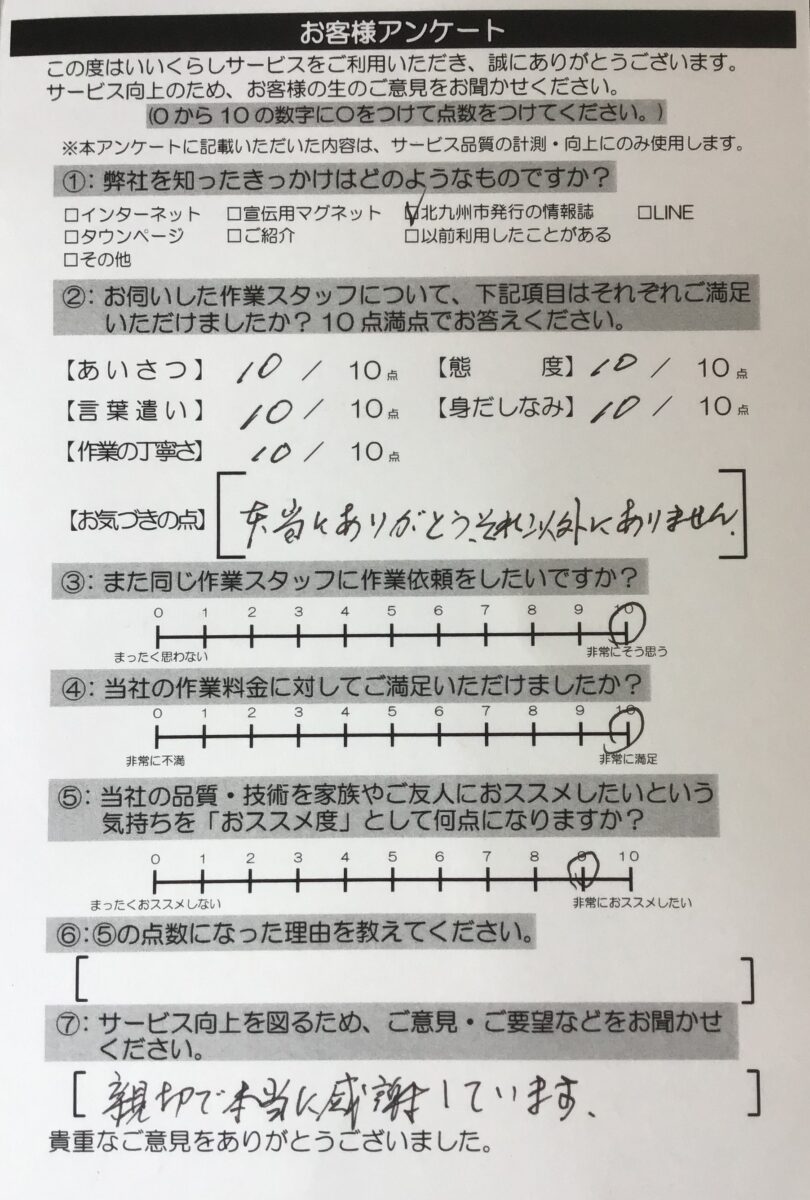 お客様アンケート
この度はいいくらしサービスをご利用いただき、誠にありがとうございます。
サービス向上のため、お客様の生のご意見をお聞かせください。
(0から10の数字に○をつけて点数をつけてください。)
※本アンケートに記載いただいた内容は、サービス品質の計測・向上にのみ使用します。
①:弊社を知ったきっかけはどのようなものですか?
□インターネット □宣伝用マグネット ☑北九州市発行の情報誌 □LINE
□タウンページ □ご紹介 □以前利用したことがある
□その他
②:お伺いした作業スタッフについて、下記項目はそれぞれご満足
いただけましたか?10点満点でお答えください。
【あいさつ】 10 / 10点 【態度】 10 / 10点
【言葉遣い】 10 / 10点 【身だしなみ】 10 / 10点
【作業の丁寧さ】 10 / 10点
【お気づきの点】 [本当にありがとう、それ以外にありません。]
③:また同じ作業スタッフに作業依頼をしたいですか?
0 1 2 3 4 5 6 7 8 9 10
まったく思わない 非常にそう思う
④:当社の作業料金に対してご満足いただけましたか?
0 1 2 3 4 5 6 7 8 9 10
非常に不満 非常に満足
⑤:当社の品質・技術を家族やご友人におススメしたいという
気持ちを「おススメ度」として何点になりますか?
0 1 2 3 4 5 6 7 8 9 10
まったくおススメしない 非常におススメしたい
⑥:⑤の点数になった理由を教えてください。
[ ]
⑦:サービス向上を図るため、ご意見・ご要望などをお聞かせ
ください。
[親切で本当に感謝しています。]
貴重なご意見をありがとうございました。